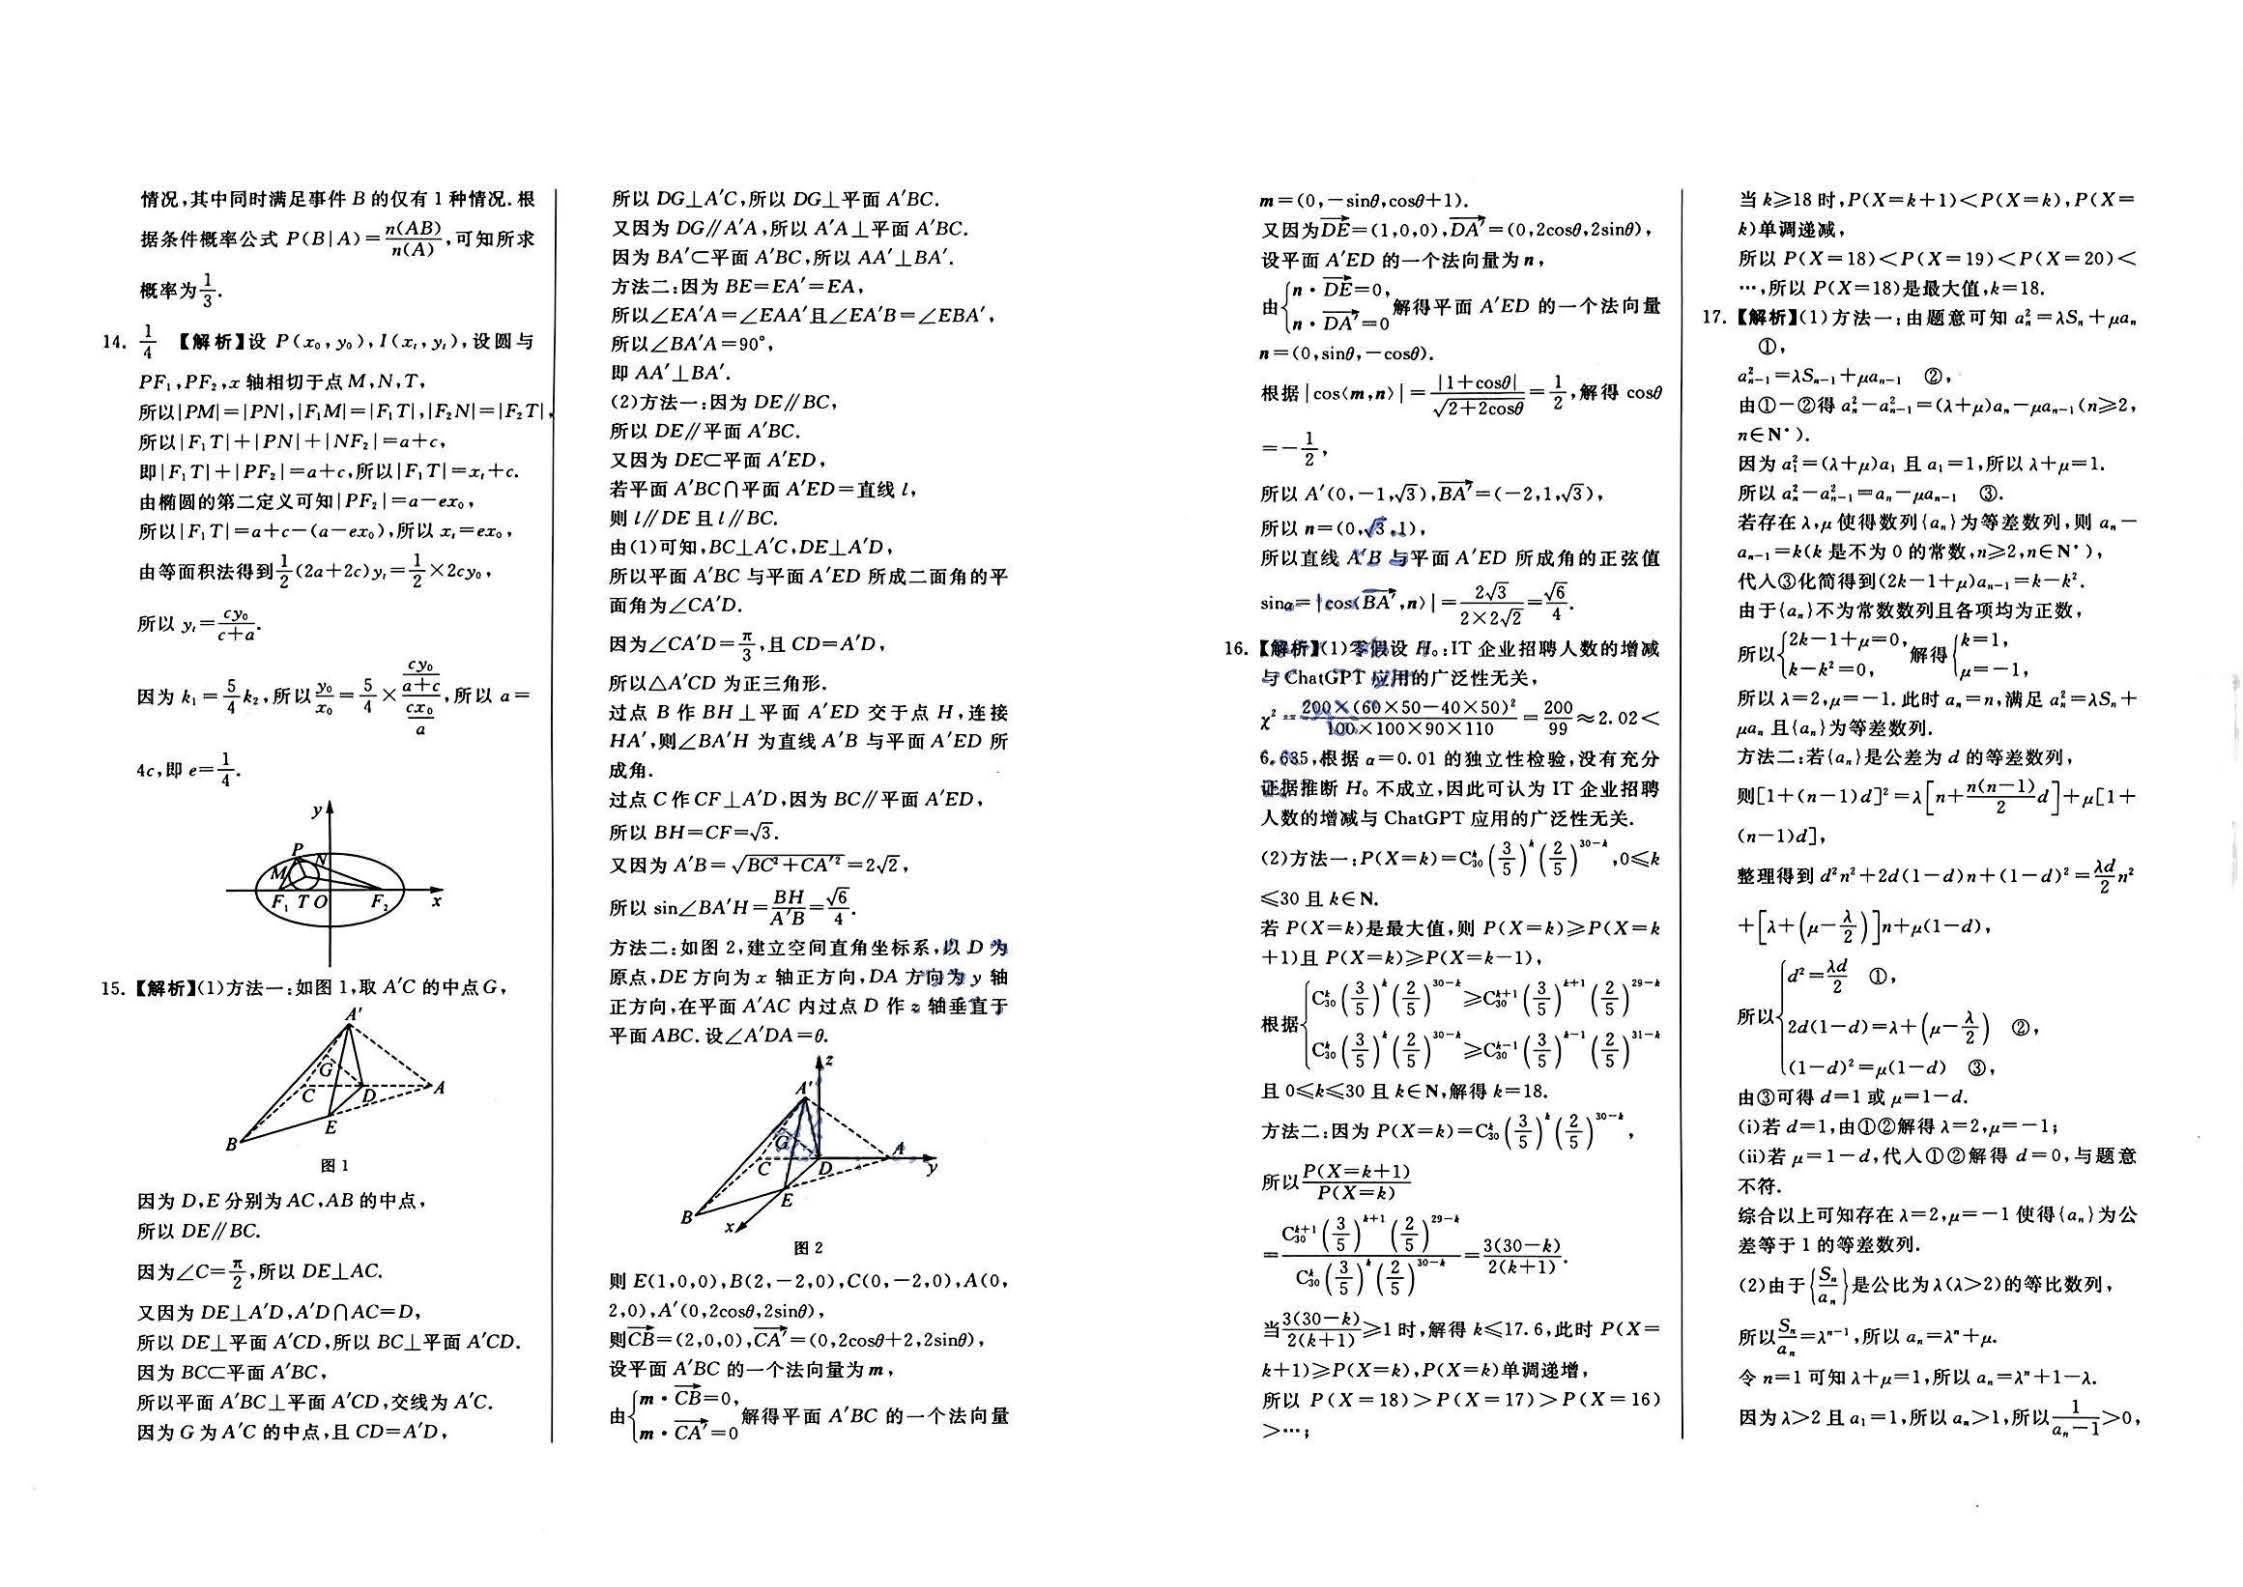 情况,其中同时满足事件 B 的仅有 1 种情况.根
据条件概率公式 P(B|A)=n(AB)/n(A),可知所求
概率为1/3.
14. 1/4 【解析】设 P(x₀,y₀),I(xₜ,yₜ),设圆与
PF₁,PF₂,x 轴相切于点 M,N,T,
所以|PM|=|PN|,|F₁M|=|F₁T|,|F₂N|=|F₂T|,
所以|F₁T|+|PN|+|NF₂|=a+c,
即|F₁T|+|PF₂|=a+c,所以|F₁T|=xₜ+c.
由椭圆的第二定义可知|PF₂|=a−ex₀,
所以|F₁T|=a+c−(a−ex₀),所以 xₜ=ex₀,
由等面积法得到1/2(2a+2c)yₜ=1/2×2cy₀,
所以 yₜ=cy₀/(c+a).
因为 k₁=5/4k₂,所以y₀/x₀=5/4×(cy₀/(a+c))/(cx₀/a),所以 a=
4c,即 e=1/4.
y
P
N
M
F₁ T O F₂ x
15.【解析】(1)方法一:如图 1,取 A′C 的中点 G,
A′
G
C D A
E
B
图 1
因为 D,E 分别为 AC,AB 的中点,
所以 DE∥BC.
因为∠C=π/2,所以 DE⊥AC.
又因为 DE⊥A′D,A′D∩AC=D,
所以 DE⊥平面 A′CD,所以 BC⊥平面 A′CD.
因为 BC⊂平面 A′BC,
所以平面 A′BC⊥平面 A′CD,交线为 A′C.
因为 G 为 A′C 的中点,且 CD=A′D,
所以 DG⊥A′C,所以 DG⊥平面 A′BC.
又因为 DG∥A′A,所以 A′A⊥平面 A′BC.
因为 BA′⊂平面 A′BC,所以 AA′⊥BA′.
方法二:因为 BE=EA′=EA,
所以∠EA′A=∠EAA′且∠EA′B=∠EBA′,
所以∠BA′A=90°,
即 AA′⊥BA′.
(2)方法一:因为 DE∥BC,
所以 DE∥平面 A′BC.
又因为 DE⊂平面 A′ED,
若平面 A′BC∩平面 A′ED=直线 l,
则 l∥DE 且 l∥BC.
由(1)可知,BC⊥A′C,DE⊥A′D,
所以平面 A′BC 与平面 A′ED 所成二面角的平
面角为∠CA′D.
因为∠CA′D=π/3,且 CD=A′D,
所以△A′CD 为正三角形.
过点 B 作 BH⊥平面 A′ED 交于点 H,连接
HA′,则∠BA′H 为直线 A′B 与平面 A′ED 所
成角.
过点 C 作 CF⊥A′D,因为 BC∥平面 A′ED,
所以 BH=CF=√3.
又因为 A′B=√(BC²+CA′²)=2√2,
所以 sin∠BA′H=BH/A′B=√6/4.
方法二:如图 2,建立空间直角坐标系,以 D 为
原点,DE 方向为 x 轴正方向,DA 方向为 y 轴
正方向,在平面 A′AC 内过点 D 作 z 轴垂直于
平面 ABC.设∠A′DA=θ.
z
A′
G
C D A y
E
B x
图 2
则 E(1,0,0),B(2,−2,0),C(0,−2,0),A(0,
2,0),A′(0,2cosθ,2sinθ),
则CB→=(2,0,0),CA′→=(0,2cosθ+2,2sinθ),
设平面 A′BC 的一个法向量为 m,
由{m·CB→=0, m·CA′→=0 解得平面 A′BC 的一个法向量
m=(0,−sinθ,cosθ+1).
又因为DE→=(1,0,0),DA′→=(0,2cosθ,2sinθ),
设平面 A′ED 的一个法向量为 n,
由{n·DE→=0, n·DA′→=0 解得平面 A′ED 的一个法向量
n=(0,sinθ,−cosθ).
根据|cos⟨m,n⟩|=|1+cosθ|/√(2+2cosθ)=1/2,解得 cosθ
=−1/2,
所以 A′(0,−1,√3),BA′→=(−2,1,√3),
所以 n=(0,√3,1),
所以直线 A′B 与平面 A′ED 所成角的正弦值
sinα=|cos⟨BA′→,n⟩|=2√3/(2×2√2)=√6/4.
16.【解析】(1)零假设 H₀:IT 企业招聘人数的增减
与 ChatGPT 应用的广泛性无关,
χ²=200×(60×50−40×50)²/(100×100×90×110)=200/99≈2.02<
6.635,根据 α=0.01 的独立性检验,没有充分
证据推断 H₀ 不成立,因此可认为 IT 企业招聘
人数的增减与 ChatGPT 应用的广泛性无关.
(2)方法一:P(X=k)=C₃₀ᵏ(3/5)^k(2/5)^(30−k),0≤k
≤30 且 k∈N.
若 P(X=k)是最大值,则 P(X=k)≥P(X=k
+1)且 P(X=k)≥P(X=k−1),
根据{C₃₀^k(3/5)^k(2/5)^(30−k)≥C₃₀^(k+1)(3/5)^(k+1)(2/5)^(29−k)
C₃₀^k(3/5)^k(2/5)^(30−k)≥C₃₀^(k−1)(3/5)^(k−1)(2/5)^(31−k)
且 0≤k≤30 且 k∈N,解得 k=18.
方法二:因为 P(X=k)=C₃₀^k(3/5)^k(2/5)^(30−k),
所以P(X=k+1)/P(X=k)
=C₃₀^(k+1)(3/5)^(k+1)(2/5)^(29−k)/C₃₀^k(3/5)^k(2/5)^(30−k)=3(30−k)/2(k+1).
当3(30−k)/2(k+1)≥1 时,解得 k≤17.6,此时 P(X=
k+1)≥P(X=k),P(X=k)单调递增,
所以 P(X=18)>P(X=17)>P(X=16)
>⋯;
当 k≥18 时,P(X=k+1)<P(X=k),P(X=
k)单调递减,
所以 P(X=18)<P(X=19)<P(X=20)<
⋯,所以 P(X=18)是最大值,k=18.
17.【解析】(1)方法一:由题意可知 aₙ²=λSₙ+μaₙ
①,
aₙ₋₁²=λSₙ₋₁+μaₙ₋₁ ②,
由①−②得 aₙ²−aₙ₋₁²=(λ+μ)aₙ−μaₙ₋₁(n≥2,
n∈N*).
因为 a₁²=(λ+μ)a₁ 且 a₁=1,所以 λ+μ=1.
所以 aₙ²−aₙ₋₁²=aₙ−μaₙ₋₁ ③.
若存在 λ,μ 使得数列{aₙ}为等差数列,则 aₙ−
aₙ₋₁=k(k 是不为 0 的常数,n≥2,n∈N*),
代人③化简得到(2k−1+μ)aₙ₋₁=k−k².
由于{aₙ}不为常数数列且各项均为正数,
所以{2k−1+μ=0, k−k²=0, 解得{k=1, μ=−1,
所以 λ=2,μ=−1.此时 aₙ=n,满足 aₙ²=λSₙ+
μaₙ 且{aₙ}为等差数列.
方法二:若{aₙ}是公差为 d 的等差数列,
则[1+(n−1)d]²=λ[n+n(n−1)/2 d]+μ[1+
(n−1)d],
整理得到 d²n²+2d(1−d)n+(1−d)²=λd/2 n²
+[λ+(μ−λ/2)]n+μ(1−d),
所以{d²=λd/2 ①,
2d(1−d)=λ+(μ−λ/2) ②,
(1−d)²=μ(1−d) ③,
由③可得 d=1 或 μ=1−d.
(i)若 d=1,由①②解得 λ=2,μ=−1;
(ii)若 μ=1−d,代人①②解得 d=0,与题意
不符.
综合以上可知存在 λ=2,μ=−1 使得{aₙ}为公
差等于 1 的等差数列.
(2)由于{Sₙ/aₙ}是公比为 λ(λ>2)的等比数列,
所以Sₙ/aₙ=λⁿ⁻¹,所以 aₙ=λⁿ+μ.
令 n=1 可知 λ+μ=1,所以 aₙ=λⁿ+1−λ.
因为 λ>2 且 a₁=1,所以 aₙ>1,所以1/(aₙ−1)>0,